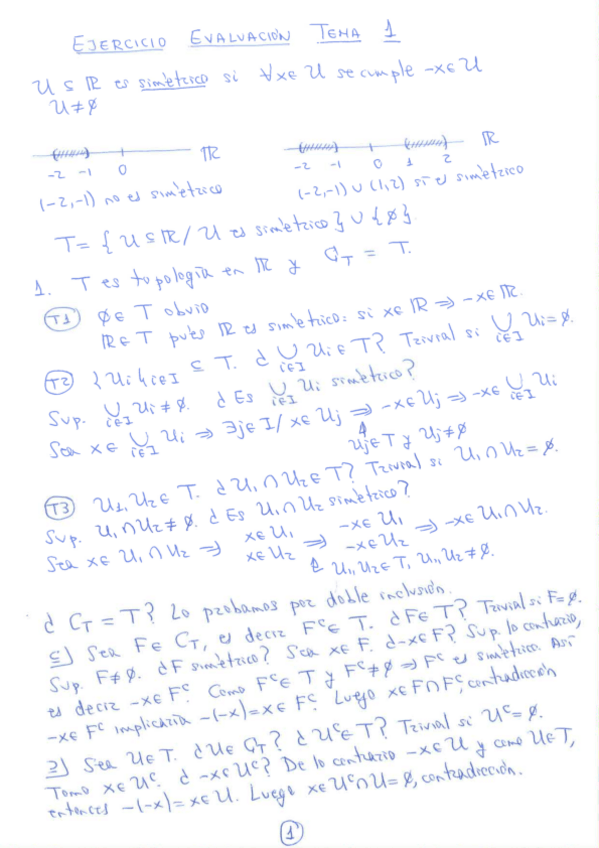 EJERCICIO EVALUACIÓN TEMA 1
U ⊆ ℝ es simétrico si ∀x∈U se cumple -x∈U
U≠∅
ℝ ℝ
-2 -1 0 -2 -1 0 1 2
(-2,-1) no es simétrico (-2,-1)∪(1,2) sí es simétrico
T={U⊆ℝ/U es simétrico}∪{∅}
1. T es topología en ℝ y C_T = T.
T1 ∅∈T obvio
ℝ∈T pues ℝ es simétrico: si x∈ℝ ⇒ -x∈ℝ.
T2 {Ui}i∈I ⊆ T. ¿ ∪i∈I Ui∈T? Trivial si ∪i∈I Ui=∅.
Sup. ∪i∈I Ui≠∅. ¿Es ∪i∈I Ui simétrico?
Sea x∈ ∪i∈I Ui ⇒ ∃j∈I/x∈Uj ⇒ -x∈Uj ⇒ -x∈ ∪i∈I Ui
Uj∈T y Uj≠∅
T3 U1,U2∈T. ¿U1∩U2∈T? Trivial si U1∩U2=∅.
Sup. U1∩U2≠∅. ¿Es U1∩U2 simétrico?
Sea x∈U1∩U2 ⇒ x∈U1 ⇒ -x∈U1 ⇒ -x∈U1∩U2.
x∈U2 -x∈U2
U1,U2∈T, U1,U2≠∅.
¿C_T=T? Lo probamos por doble inclusión.
⊆) Sea F∈C_T, es decir F^c∈T. ¿F∈T? Trivial si F=∅.
Sup. F≠∅. ¿F simétrico? Sea x∈F. ¿-x∈F? Sup. lo contrario,
es decir -x∈F^c. Como F^c∈T y F^c≠∅ ⇒ F^c es simétrico. Así
-x∈F^c implicaría -(-x)=x∈F^c. Luego x∈F∩F^c, contradicción
⊇) Sea U∈T. ¿U∈C_T? ¿U^c∈T? Trivial si U^c=∅.
Tomo x∈U^c. ¿-x∈U^c? De lo contrario -x∈U y como U∈T,
entonces -(-x)=x∈U. Luego x∈U^c∩U=∅, contradicción.
1